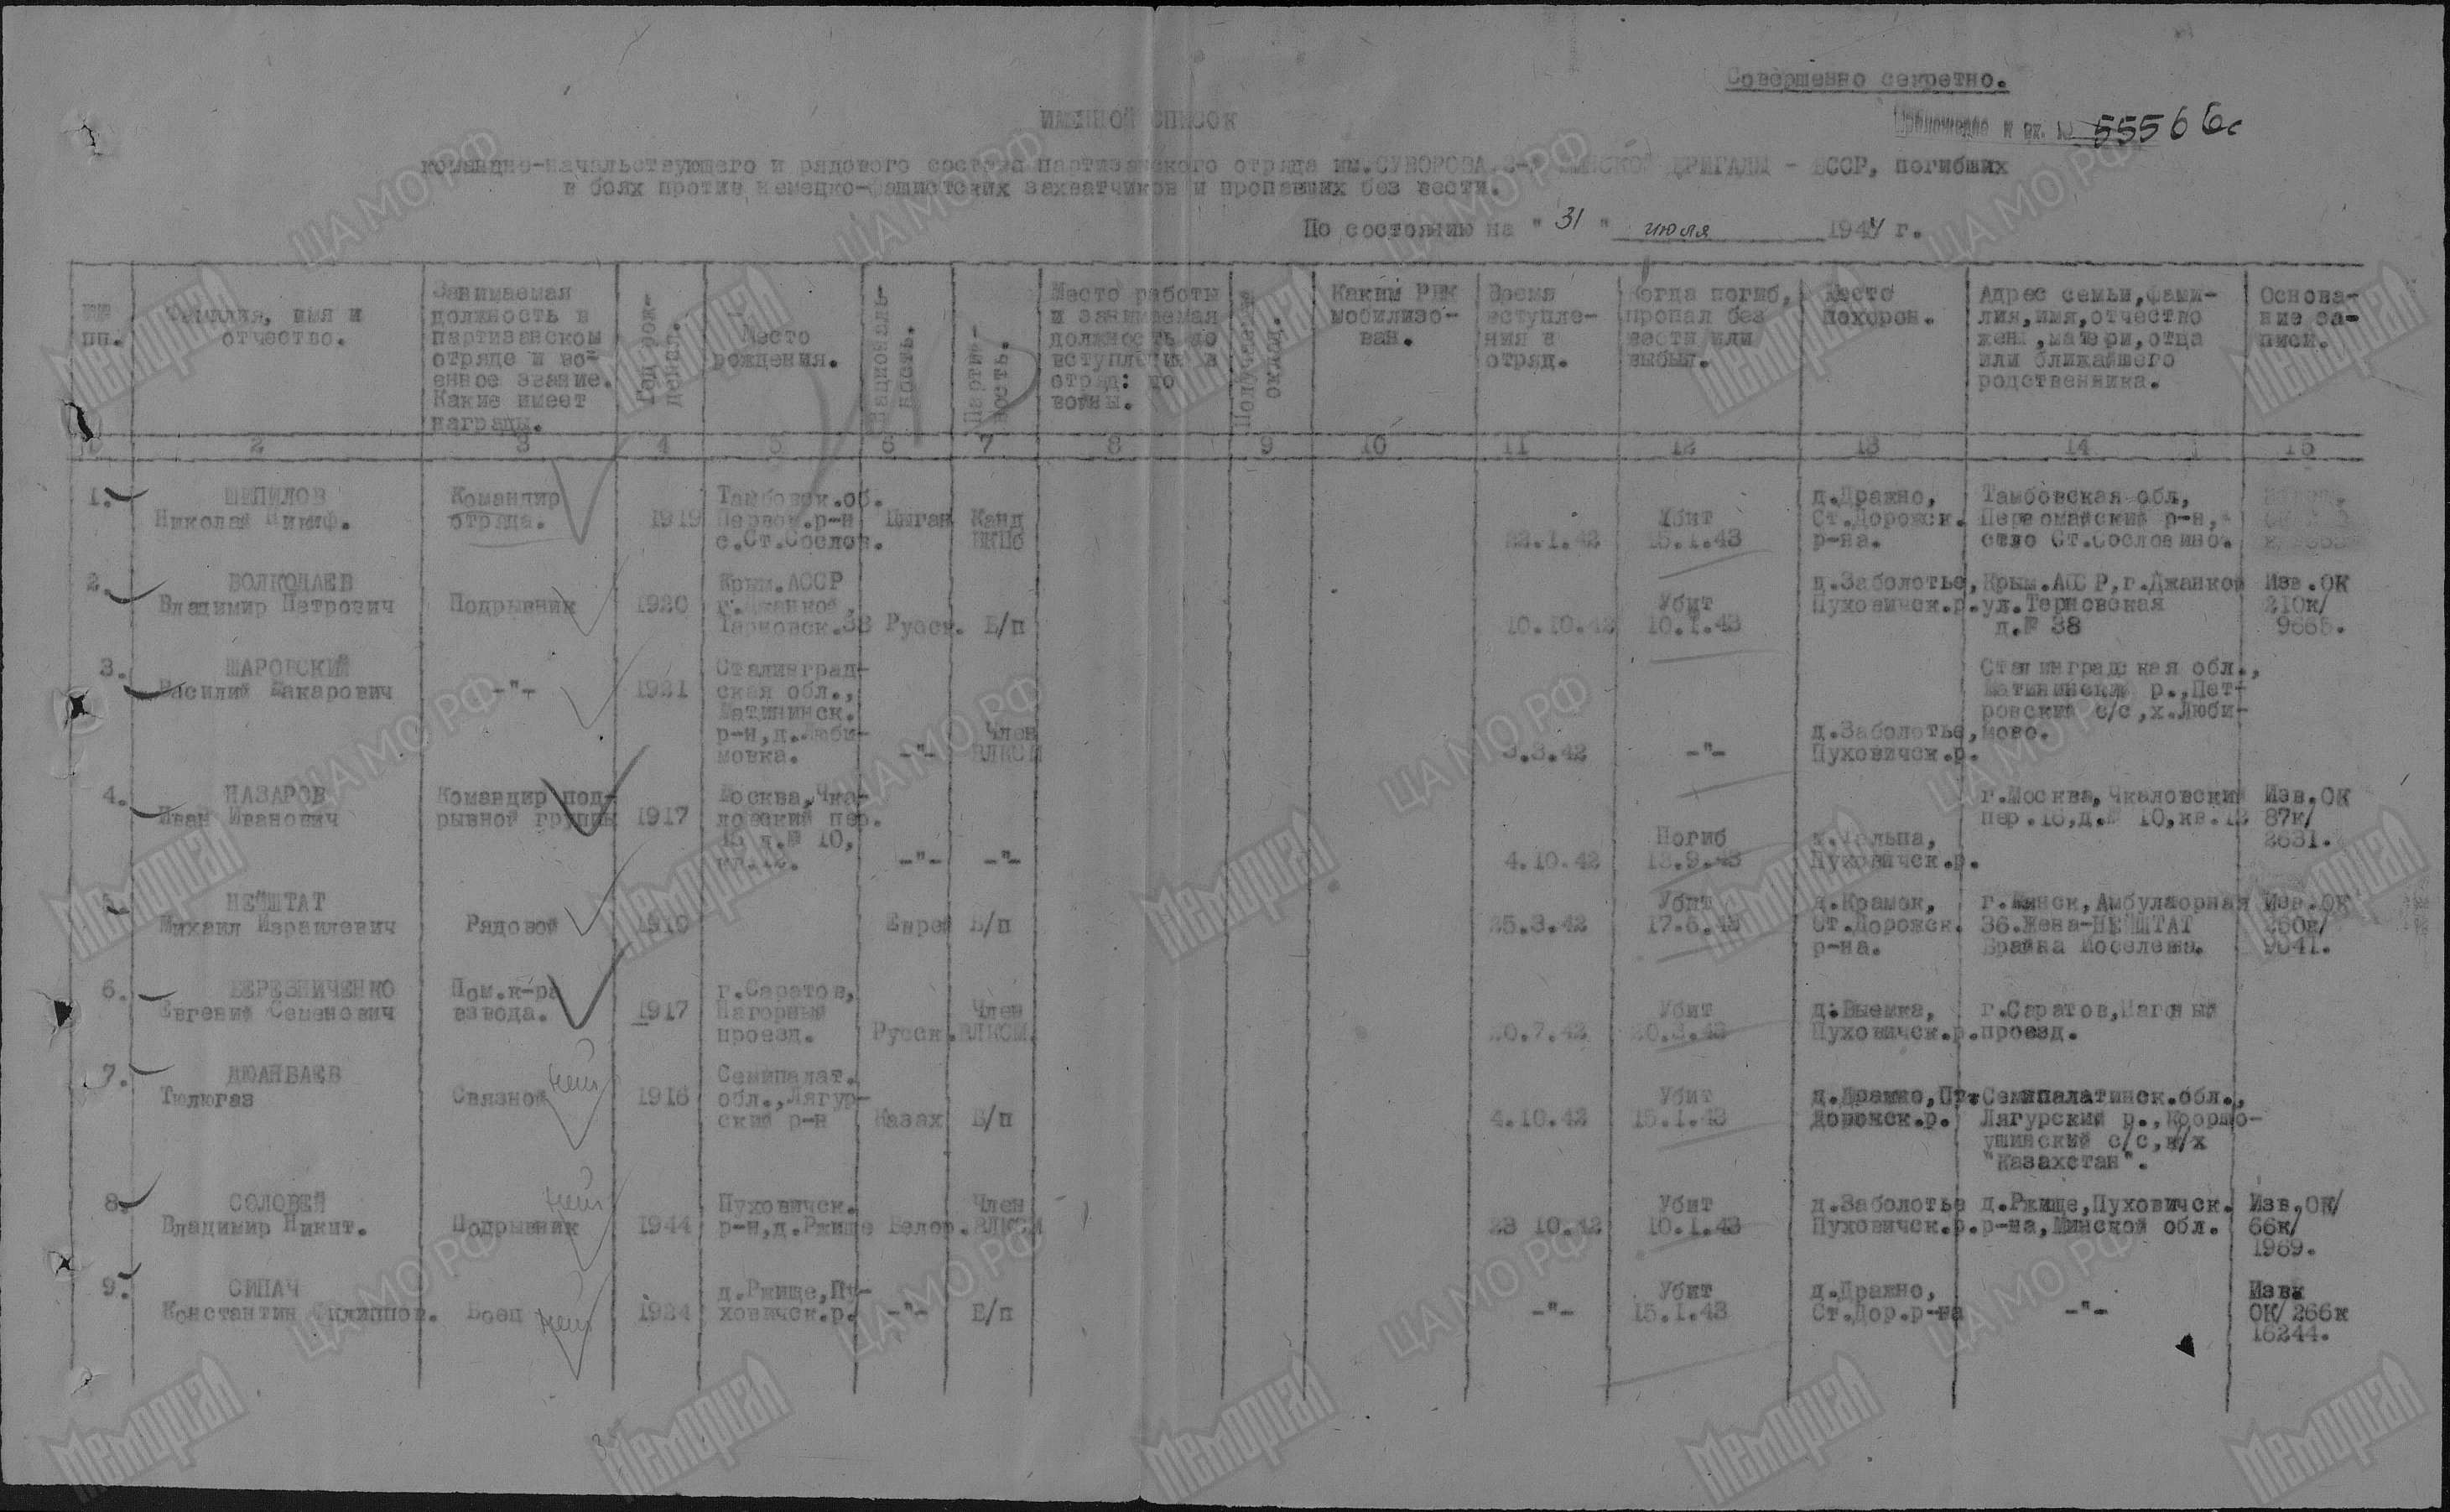 Совершенно секретно.
Приложение к вх. № 55566с
ИМЕННОЙ СПИСОК
командно-начальствующего и рядового состава партизанского отряда им.СУВОРОВА, 2-й МИНСКОЙ БРИГАДЫ - БССР, погибших
в боях против немецко-фашистских захватчиков и пропавших без вести.
По состоянию на " 31 " июля 1944 г.
№№ пп.
Фамилия, имя и отчество.
Занимаемая должность в партизанском отряде и во- енное звание. Какие имеет награды.
Год рож- дения.
Место рождения.
Национальность.
Партий- ность.
Место работы и занимаемая должность до вступления в отряд: до войны.
Получаемый оклад.
Каким РВК мобилизо- ван.
Время вступле- ния в отряд.
Когда погиб, пропал без вести или выбыл.
Место похорон.
Адрес семьи, фами- лия, имя, отчество жены, матери, отца или ближайшего родственника.
Основа- ние за- писи.
1 2 3 4 5 6 7 8 9 10 11 12 13 14 15
1. ШИПИЛОВ
Николай Никиф.
Командир
отряда.
1919
Тамбовск.об.
Первом.р-н
с.Ст.Сослов.
Цыган
Канд
ВКПб
22.1.42
Убит
15.1.43
д.Дражно,
Ст.Дорожск.
р-на.
Тамбовская обл,
Первомайский р-н,
село Ст.Сословино.
2. ВОЛКОДАЕВ
Владимир Петрович
Подрывник
1920
Крым.АССР
г.Джанкой,
Тарновск.38
Русск.
Б/п
10.10.42
Убит
10.1.43
д.Заболотье,
Пуховичск.р.
Крым.АССР,г.Джанкой
ул.Терновская
д.№ 38
Изв.ОК
210к/
9665.
3. ШАРОВСКИЙ
Василий Макарович
-"-
1921
Сталинград-
ская обл.,
Матининск.
р-н,д.Люби-
мовка.
-"-
Член
ВЛКСМ
3.3.42
-"-
д.Заболотье,
Пуховичск.р.
Сталинградская обл.,
Матининский р.,Пет-
ровский с/с,х.Люби-
мово.
4. НАЗАРОВ
Иван Иванович
Командир под-
рывной группы
1917
Москва,Чка-
ловский пер.
16 д.№ 10,
кв.12.
-"-
-"-
4.10.42
Погиб
13.9.43
д.Тальца,
Пуховичск.р.
г.Москва,Чкаловский
пер.16,д.№ 10,кв.12
Изв.ОК
87к/
2631.
5. НЕЙШТАТ
Михаил Израилевич
Рядовой
1910
Еврей
Б/п
25.3.42
Убит
17.6.43
д.Крамок,
Ст.Дорожск.
р-на.
г.Минск,Амбулаторная
36.Жена-НЕЙШТАТ
Брайна Моселевна.
Изв.ОК
260к/
9641.
6. БЕРЕЗНИЧЕНКО
Евгений Семенович
Пом.к-ра
взвода.
1917
г.Саратов,
Нагорный
проезд.
Русск.
Член
ВЛКСМ.
20.7.42
Убит
20.3.43
д.Выемка,
Пуховичск.р.
г.Саратов,Нагорный
проезд.
7. ДЮАНБАЕВ
Тюлюгаз
Связной
нет
1916
Семипалат.
обл.,Лягур-
ский р-н
Казах
Б/п
4.10.42
Убит
15.1.43
д.Дражно,Ст.
дорожск.р.
Семипалатинск.обл.,
Лягурский р.,Коормо-
ушинский с/с,к/х
"Казахстан".
8. СОЛОВЕЙ
Владимир Никит.
Подрывник
нет
1944
Пуховичск.
р-н,д.Ржище
Белор.
Член
ВЛКСМ
23 10.42
Убит
10.1.43
д.Заболотье
Пуховичск.р.
д.Ржище,Пуховичск.
р-на,Минской обл.
Изв.ОК/
66к/
1969.
9. СИПАЧ
Константин Филиппов.
Боец
нет
1924
д.Ржище,Пу-
ховичск.р.
-"-
Б/п
-"-
Убит
15.1.43
д.Дражно,
Ст.Дор.р-на
-"-
Изв.
ОК/266к
16244.